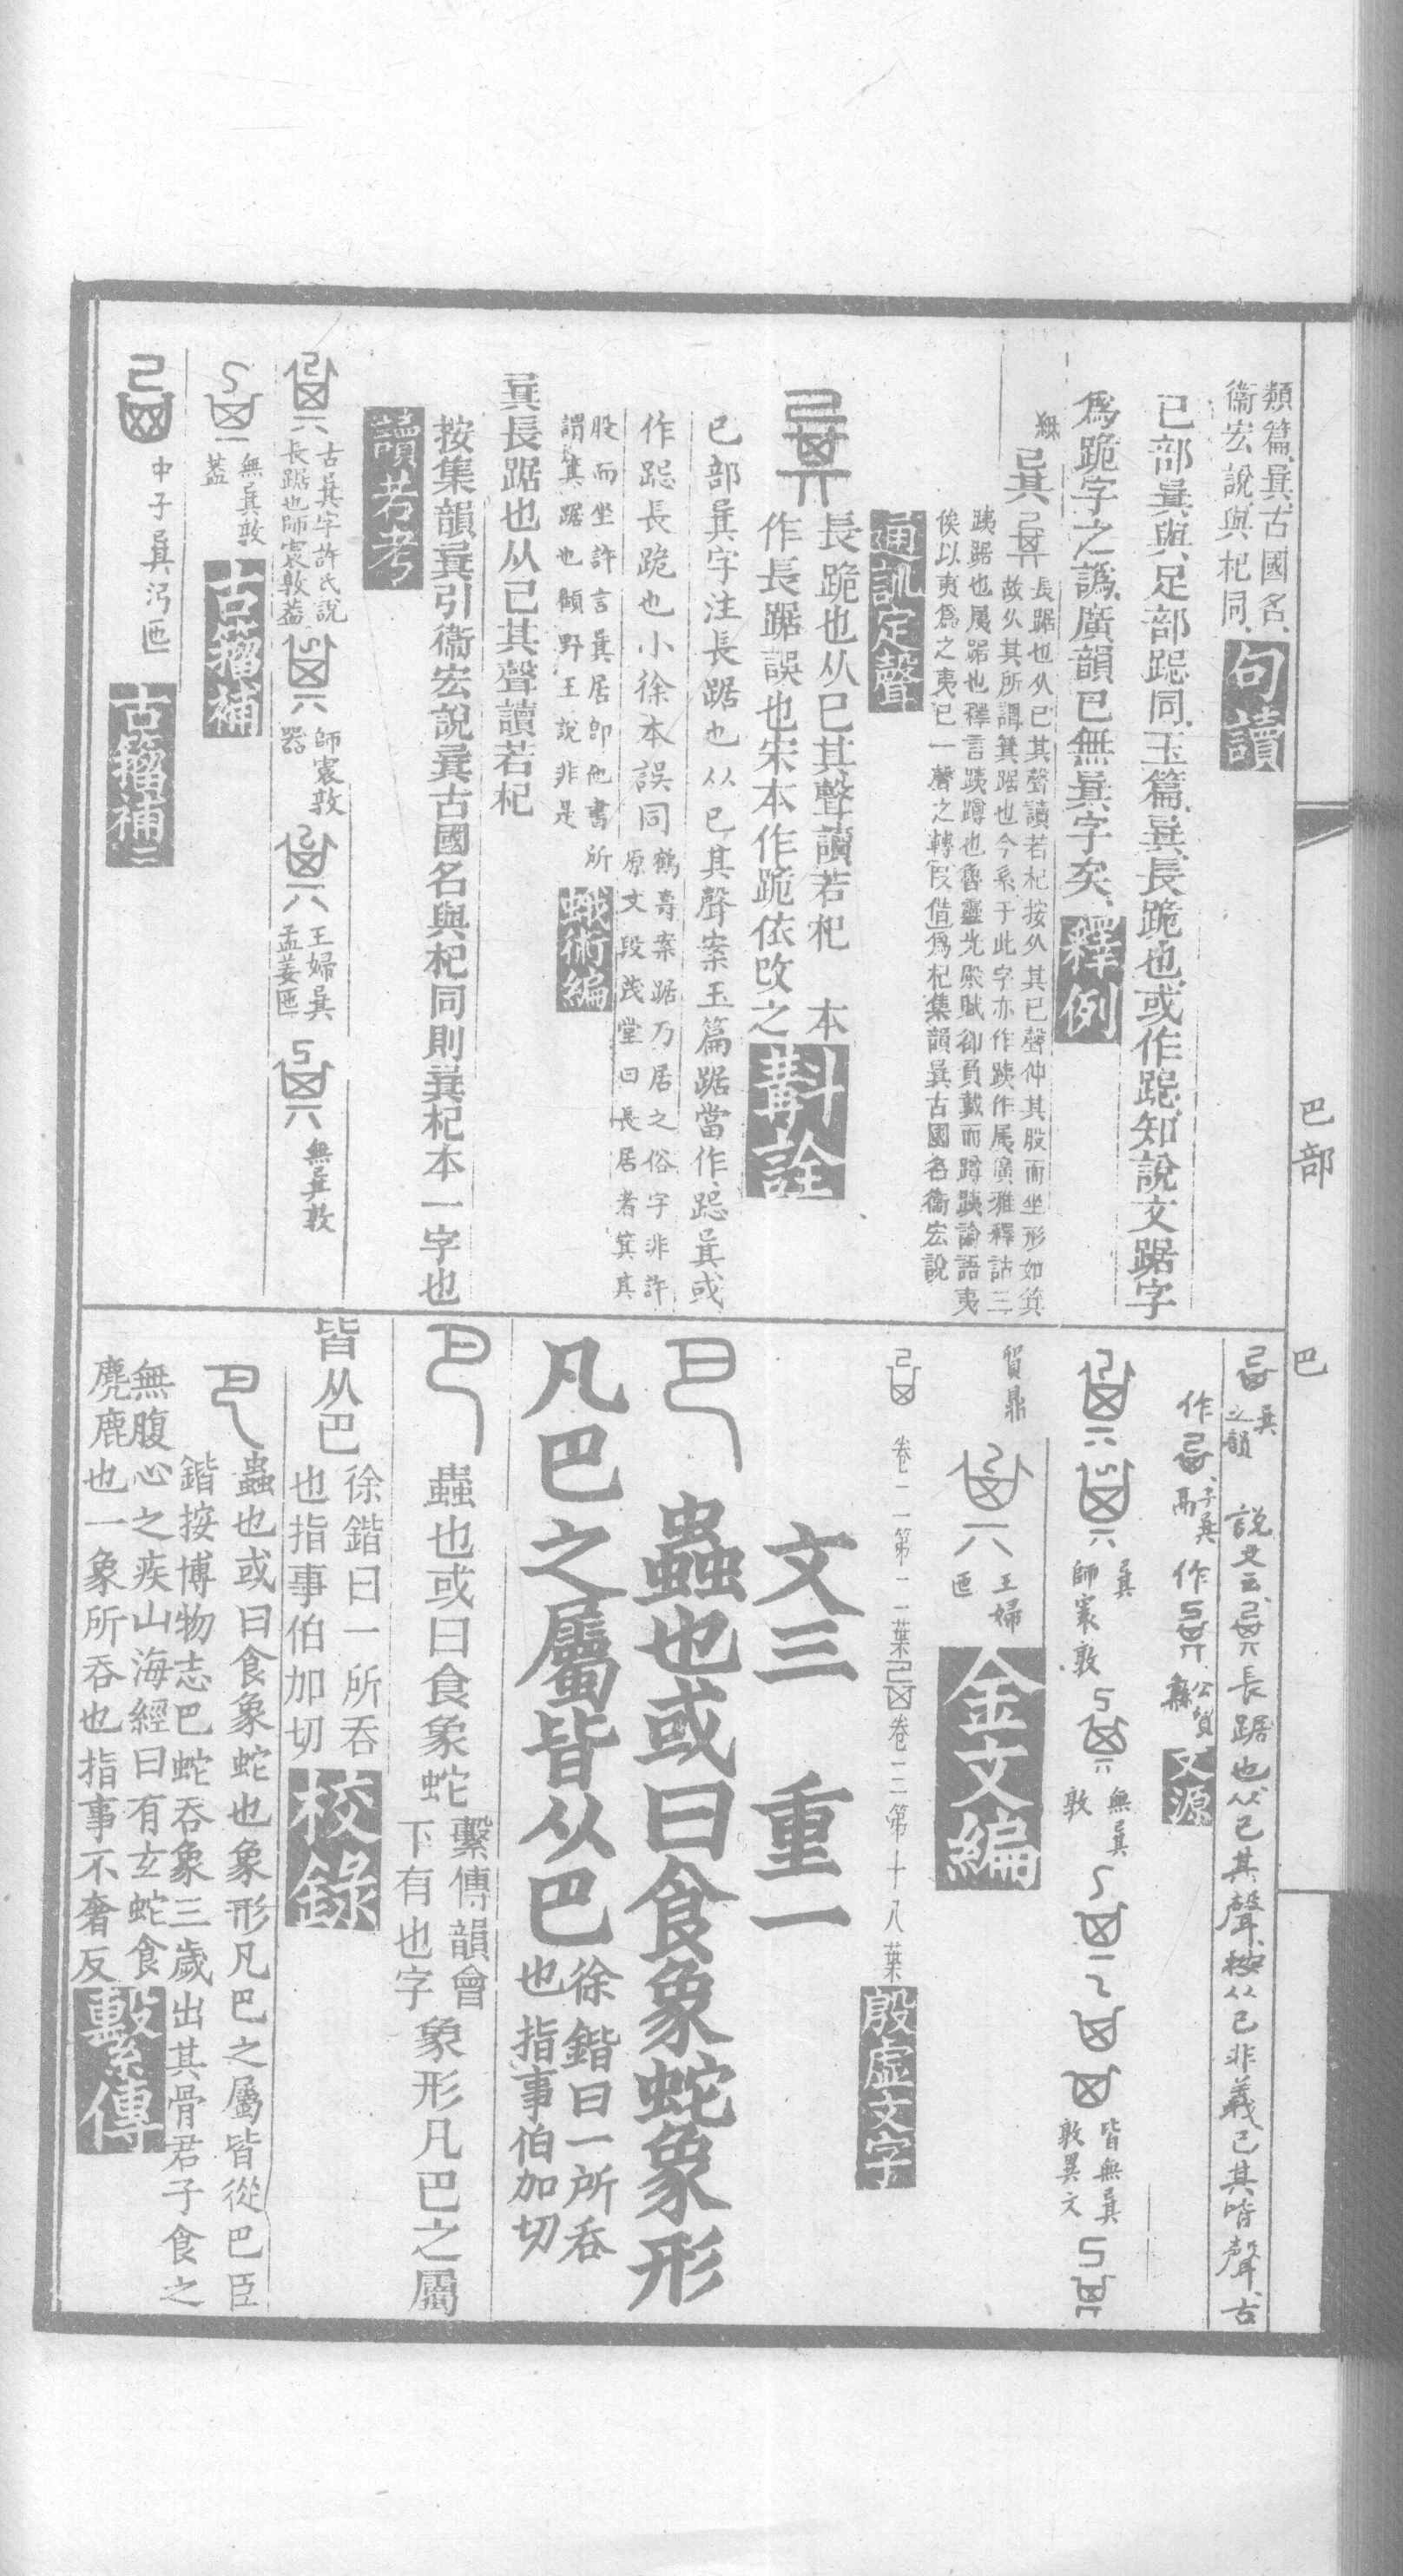 類篇㠱古國名
衞宏說與杞同 句讀
己部㠱與足部跽同玉篇㠱長跪也或作跽知說文踞字
爲跪字之譌廣韻己無㠱字矣 釋例
㠱
長踞也从己其聲讀若杞按从其己聲伸其股而坐形如箕
故从其所謂箕踞也今系于此字亦作跠作㞾廣雅釋詁三
跠踞也㞾踞也釋言跠蹲也魯靈光殿賦卻負戴而蹲跠論語夷
俟以夷爲之夷己一聲之轉叚借爲杞集韻㠱古國名衞宏說
通訓定聲
長跪也从己其聲讀若杞 本
作長踞誤也宋本作跪依改之 斠詮
己部㠱字注長踞也从己其聲案玉篇踞當作跽㠱或
作跽長跪也小徐本誤同
鶴壽案踞乃居之俗字非許
原文段茂堂曰長居者箕其
股而坐許言㠱居卽他書所
謂箕踞也顧野王說非是 蛾術編
㠱長踞也从己其聲讀若杞
按集韻㠱引衞宏說㠱古國名與杞同則㠱杞本一字也
讀若考
古㠱字許氏說
長踞也師寰敦蓋
師寰敦
器
王婦㠱
孟姜匜
無㠱敦
無㠱敦
蓋
古籀補
中子㠱沔匜
古籀補二
巴部
巴
㠱
之韻
說文云 長踞也从己其聲按从己非義己其皆聲古
作 子㠱
鬲 作 公貿
鼎 文源
㠱
師寰敦
無㠱
敦
皆無㠱
敦異文
貿鼎
王婦
匜
金文編
卷二第二葉 卷二第十八葉
殷虛文字
文三 重一
蟲也或曰食象蛇象形
凡巴之屬皆从巴
徐鍇曰一所吞
也指事伯加切
蟲也或曰食象蛇
繫傳韻會
下有也字
象形凡巴之屬
皆从巴
徐鍇曰一所吞
也指事伯加切
校錄
蟲也或曰食象蛇也象形凡巴之屬皆從巴臣
鍇按博物志巴蛇吞象三歲出其骨君子食之
無腹心之疾山海經曰有玄蛇食
麂鹿也一象所吞也指事不奢反 繫傳